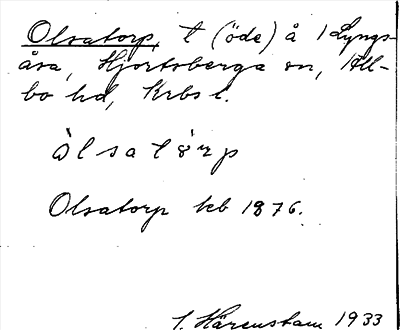 Olsatorp, t (öde) å 1 Lyngs-
åsa, Hjortsberga sn, All-
bo hd, Krbs l.
òlsatòrp
Olsatorp kb 1876.
I. Härenstam 1933